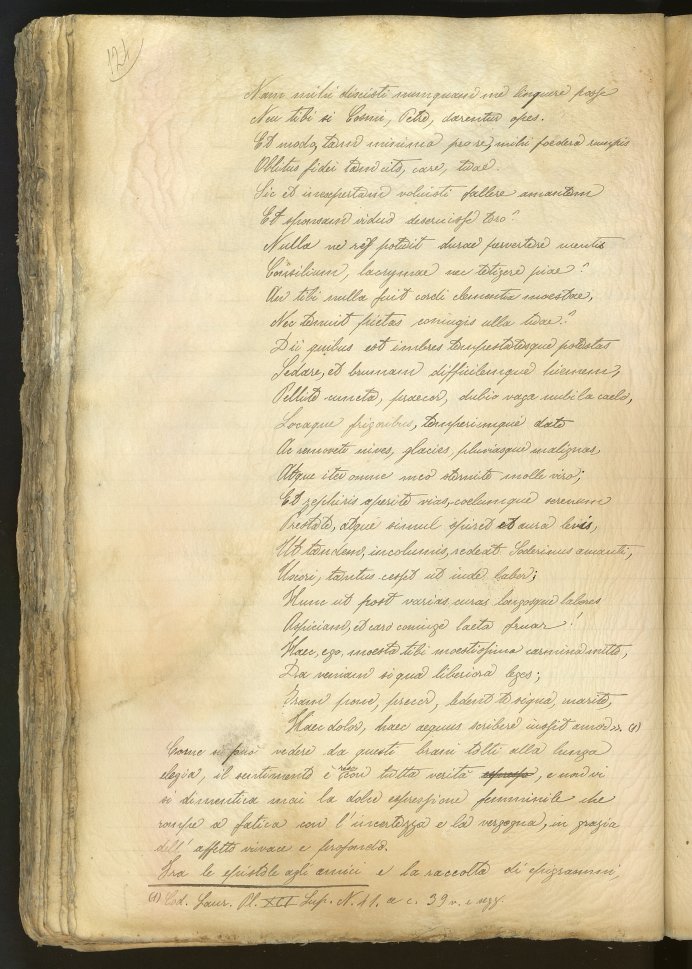 124
Nam mihi dixisti numquam me linquere posse
Nec tibi si Cosmi, Petre, darentur opes.
Et modo, tam minima pro re, mihi foedera rumpis
Oblitus fidei tam cito, care, tuae.
Sic et inexpertam voluisti fallere amantem
Et sponsam viduo deseruisse toro?
Nulla ne res potuit durae pervertere mentis
Consilium, lacrymae nec tetigere piae?
An tibi nulla fuit cordi clementia moestae,
Nec tenuit pietas coniugis ulla tuae?
Dii quibus est imbres tempestatesque potestas
Sedare, et brumam difficilemque hiemem,
Pellite cuncta, precor, dubio vaga nubila caelo,
Locaque frigoribus, temperiemque date
Ac removete nives, glacies, pluviasque malignas,
Atque iter omne meo sternite molle viro;
Et zephiris aperite vias, coelumque serenum
Prestate, atque simul spiret et aura levis,
Ut tandem, incolumis, redeat Soderinus amanti,
Uxori, tantus cesset ut inde labor;
Hunc ut post varias curas longosque labores
Aspiciam, et caro coniuge laeta fruar!
Haec, ego, moesta tibi moestissima carmina mitto,
Da veniam si qua liberiora leges;
Iram pone, precor, ledent te siqua, marite,
Haec dolor, haec aegrum scribere iussit amor. (1)
Come si può vedere da questi brani tolti alla lunga
elegia, il sentimento è reso con tutta verità , e non vi
si dimentica mai la dolce espressione femminile che
rompe a fatica con l'incertezza e la vergogna, in grazia
dell' affetto vivace e profondo.
Tra le epistole agli amici e la raccolta di epigrammi,
(1) Cod. Laur. Pl. XCI Sup. N. 41. a c. 39 v. e segg.